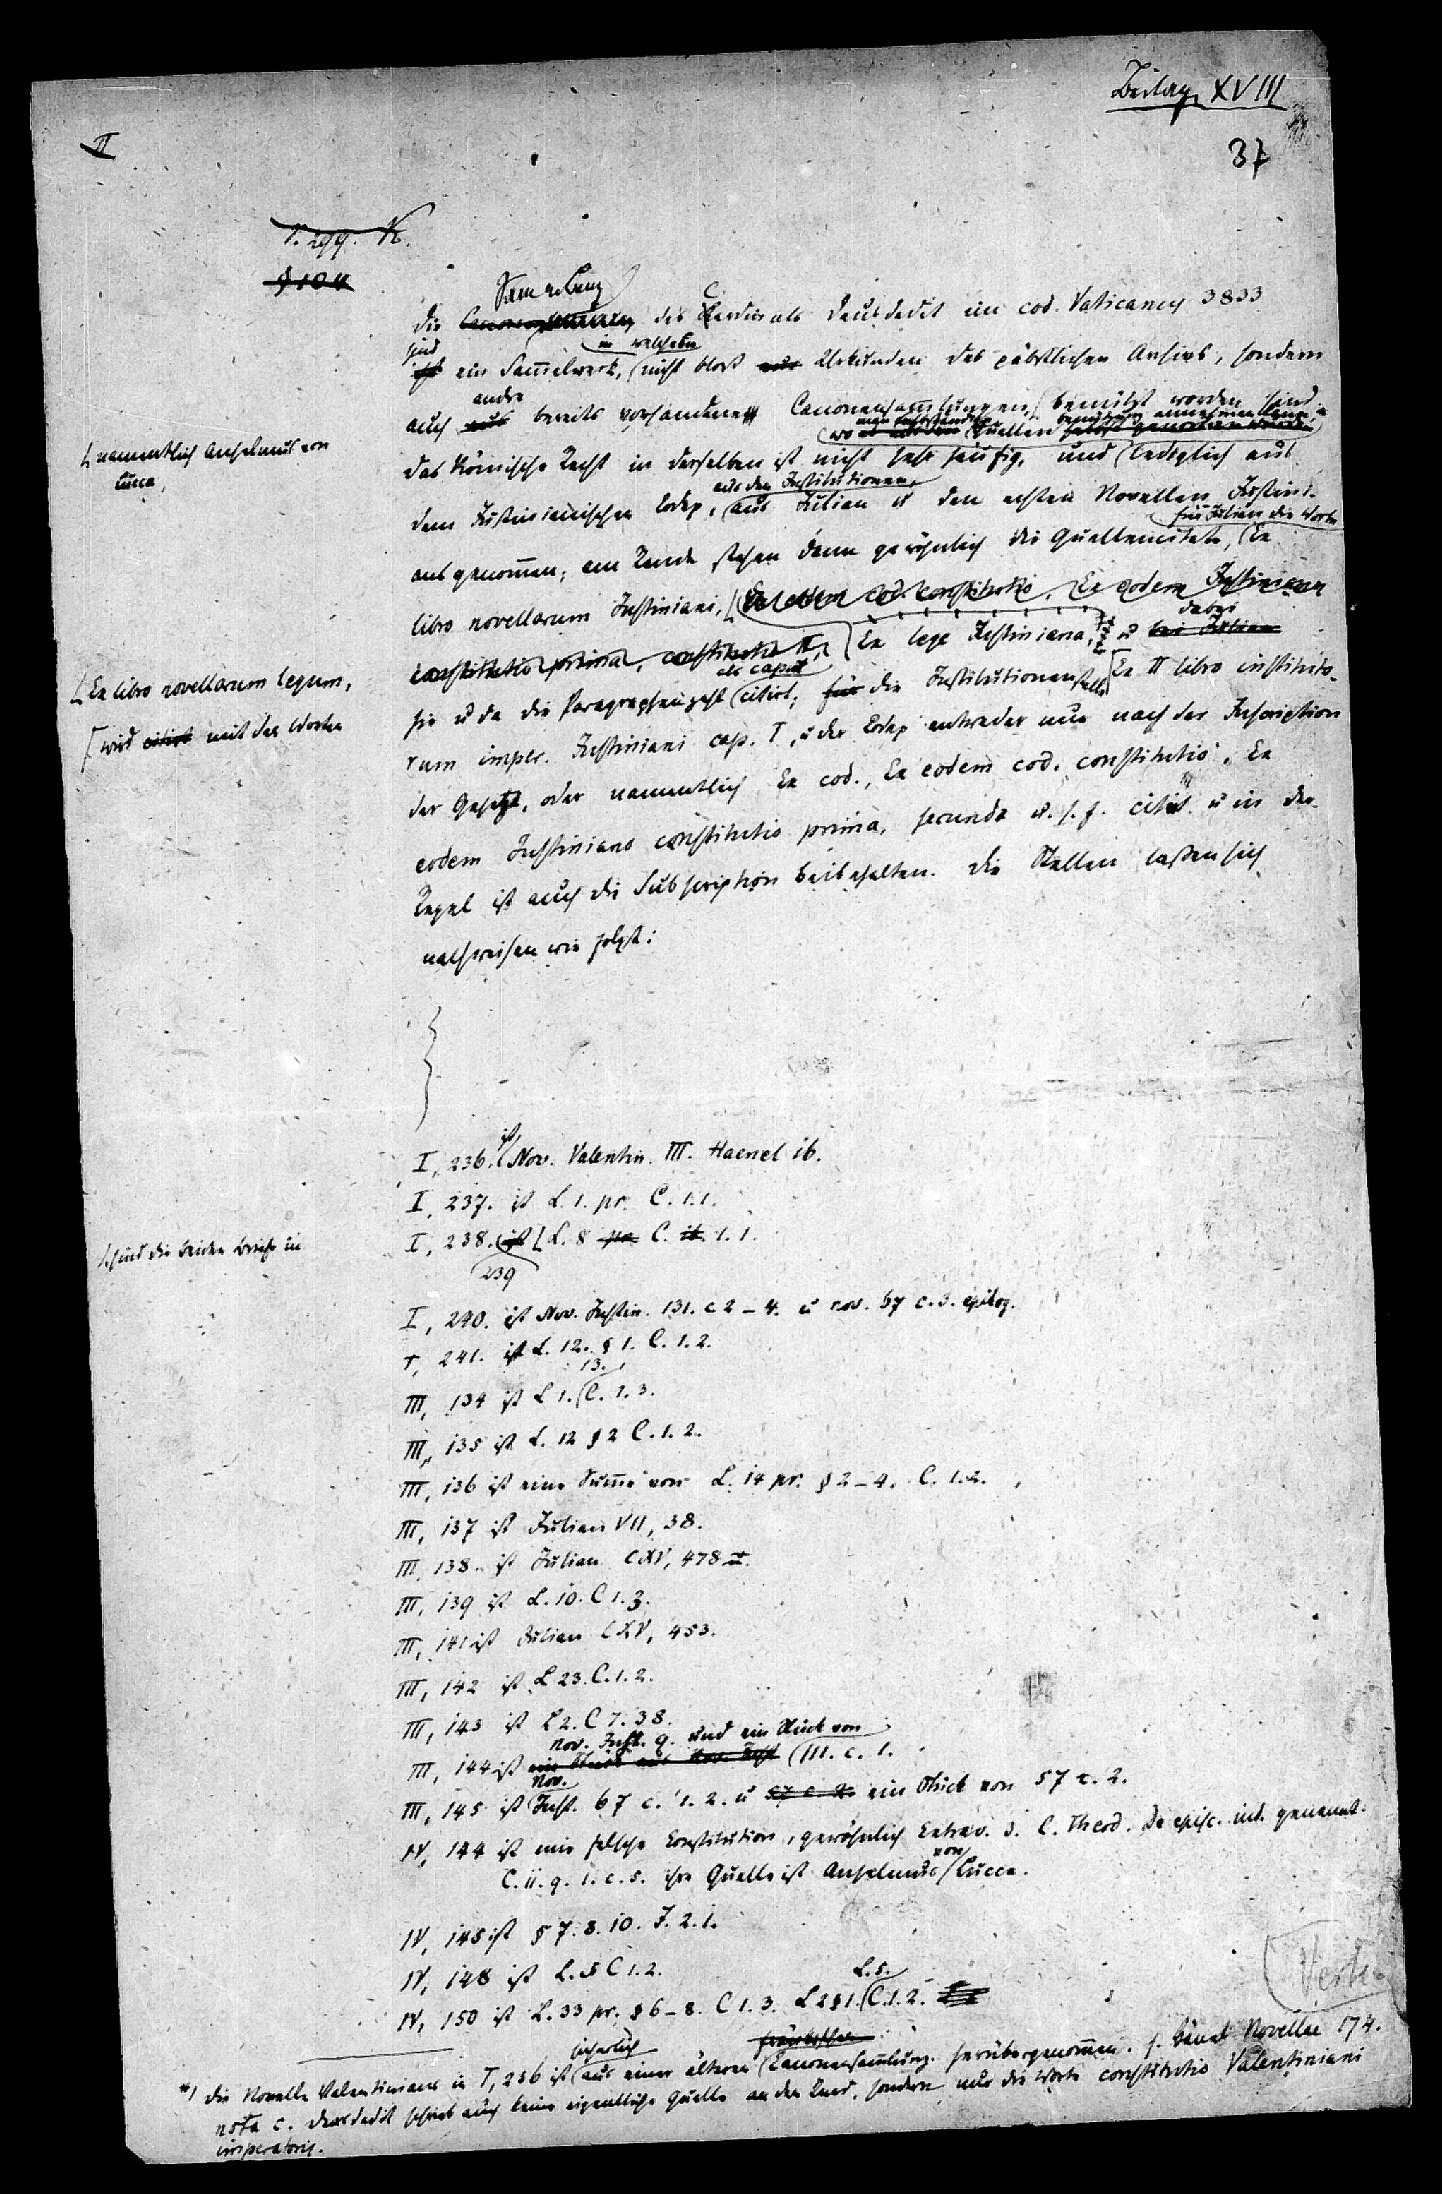 Beilage XVIII
II
37
§ 104
Sammlung
Die des Cardinals Deusdedit im cod. Vaticanus 3833
in welchem
ist ein Sammelwerk, nicht bloß Urkunden des päbstlichen Archivs, sondern
andre
auch aus bereits vorhandenen Canonensammlungen, benützt worden sind.
namentlich Anselmus von
Lucca,
das Römische Recht in derselben ist nicht sehr häufig, und lediglich aus
aus den Institutionen,
dem Justinianischen Codex, aus Julian u den ächten Novellen Justini-
für Julian die Worte
ans genommen; am Rande stehen dann gewöhnlich die Quellencitate, Ex
libro novellarum Justiniani, Ex eodem cod. constitutio, Ex eodem Justiniano
dabei
constitutio prima, constitutio II, Ex lege Justiniana, u bei Julian
als caput
Ex libro novellarum legum,
hie u da die Paragraphenzahl citirt; für die Institutionen Ex II libro instituto-
wird citirt mit den Worten
rum imper. Justiniani cap. I, u der Codex entweder nur nach der Inscription
der Gesetze, oder namentlich Ex cod., Ex eodem cod. constitutio, Ex
eodem Justiniano constitutio prima, secunda u. s. f. citirt u in der
Regel ist auch die Subscription beibehalten. Die Stellen lassen sich
nachweisen wie folgt:
I, 236. ist Nov. Valentin. III. Haenel ib.
I, 237. ist L. 1. pr. C. 1. 1.
sind die beiden Briefe in
I, 238. ist L. 8 pr. C. it. 1. 1.
239
I, 240. ist Nov. Justin. 131. c 2 – 4. u nov. 67 c. 3. epilog.
I, 241. ist L. 12. § 1. C. 1. 2.
13.
III, 134 ist L 1. C. 1. 3.
III, 135 ist L. 12 § 2 C. 1. 2.
III, 136 ist eine Summe von L. 14 pr. § 2 – 4. C. 1. 2.
III, 137 ist Julian VII, 38.
III, 138. ist Julian CXV, 478
III, 139 ist L. 10. C 1. 3.
III, 141 ist Julian CXV, 453.
III, 142 ist L 23. C. 1. 2.
III, 143 ist L 2. C 7. 38.
nov. Just. 9. und ein Stück von
III, 144 ist ein Stück aus Nov. Just 111. c. 1.
Nov.
III, 145 ist Just. 67 c. 1. 2. u 57 c. 2. ein Stück von 57 c. 2.
IV, 144 ist eine falsche Constitution, gewöhnlich Extrav. d. C. Theod. de episc. iud. genannt.
C. 11. q. 1. c. 5. ihre Quelle ist Anselmus von Lucca.
IV, 145 ist § 7. 8. 10. J. 2. 1.
IV, 148 ist L. 5 C 1. 2.
L. 5.
IV, 150 ist L. 33 pr. § 6 – 8. C 1. 3. L 2 § 1. C. 1. 2.
sicherlich
*) Die Novelle Valentinians in I, 236 ist aus einer älteren Canonensammlung herübergenommen. s. Hänel Novellae 174.
nota c. Deusdedit schrieb auch keine eigentliche Quelle an den Rand, sondern nur die Worte constitutio Valentiniani
imperatoris.